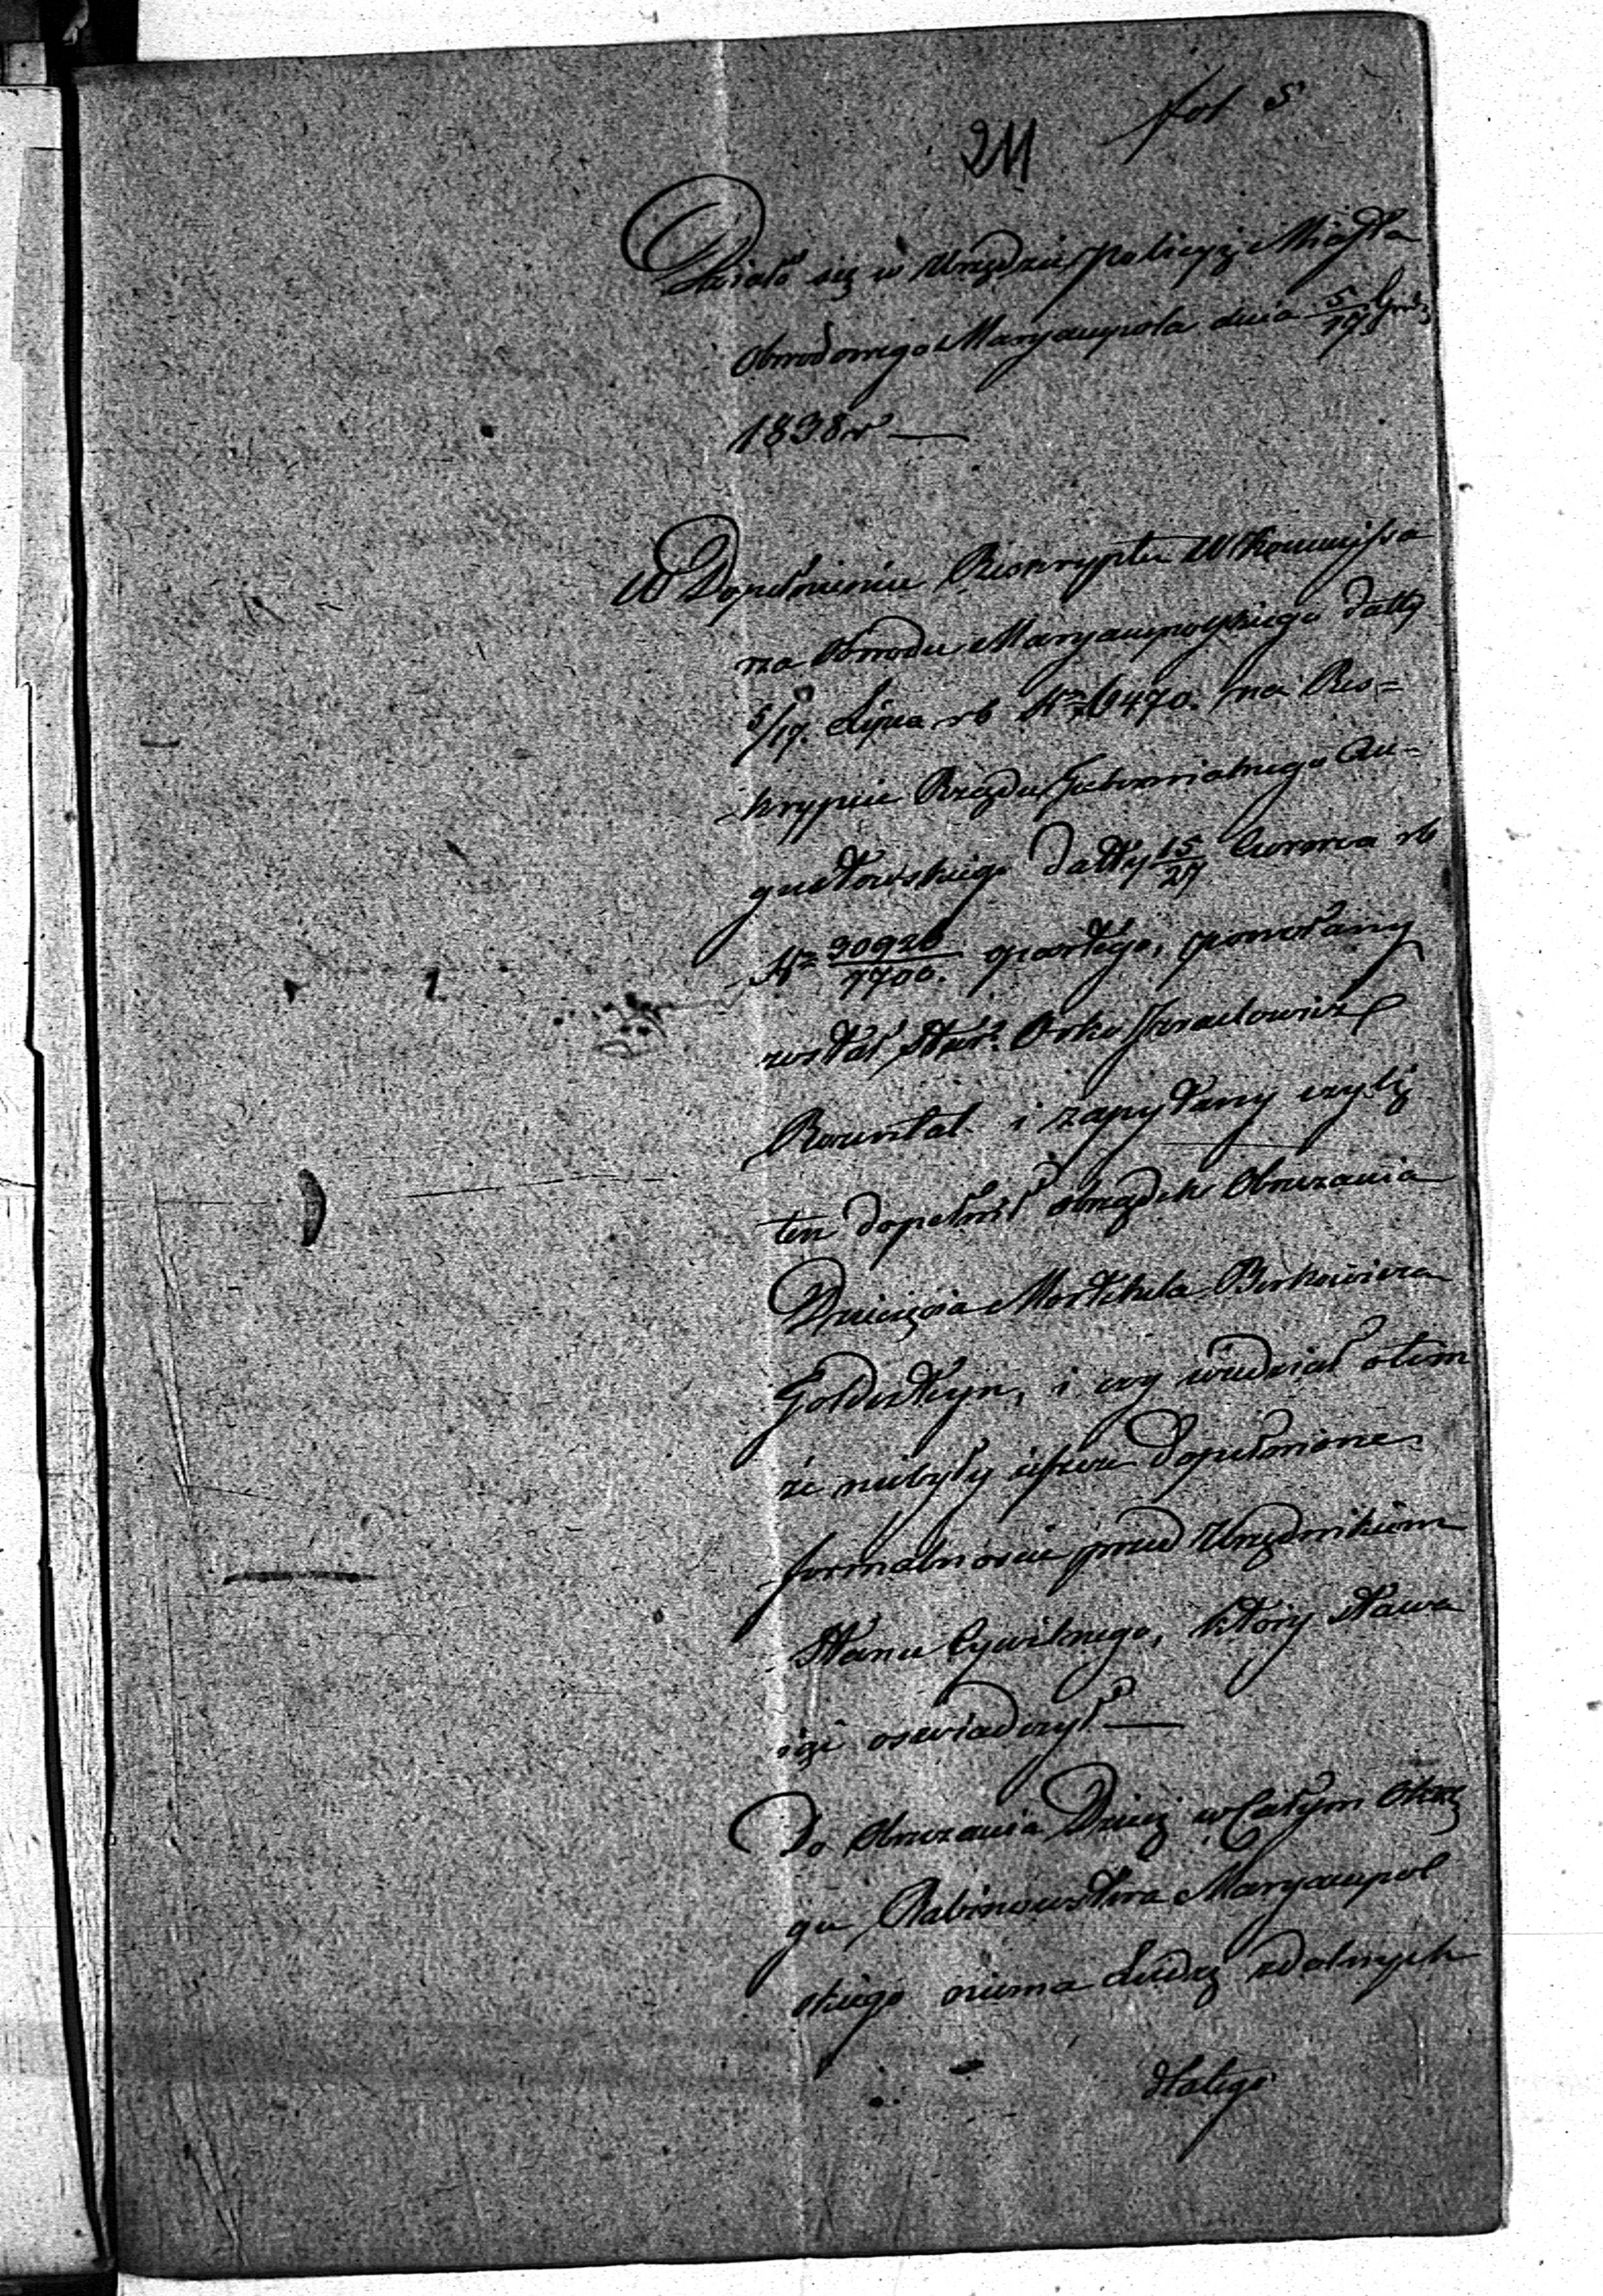 fol 5
211
Działo się w Urzędzie Policyi Miasta
Obwodowego Maryampola dnia 5/17 Grud:
1838 r —
W Dopełnieniu Reskryptu W Kommissa
rza Obwodu Maryampolskiego datty
5/17. Lipca rb Nro 16470. na Res=
krypcie Rządu Gubernialnego Au-
gustowskiego datty 15/27 Czerwca rb
Nro 30926/7700. opartego, powołany
został Star. Orko Izraelowicz
Rozental i zapytany czyli
ten dopełnił obrządek Obrzezania
Dziecięcia Mortchela Berkowicza
Goldszteyn, i czy wiedział otem
że niebyły ieszcze dopełnione
formalnoscie przed Urzędnikiem
Stanu Cywilnego, który stawa
iąc oswiadczył —
Do Obrzezania Dzieci w Całym Okrę
gu Rabinowstwa Maryampol
skiego niema Ludzi zdolnych
dlatego